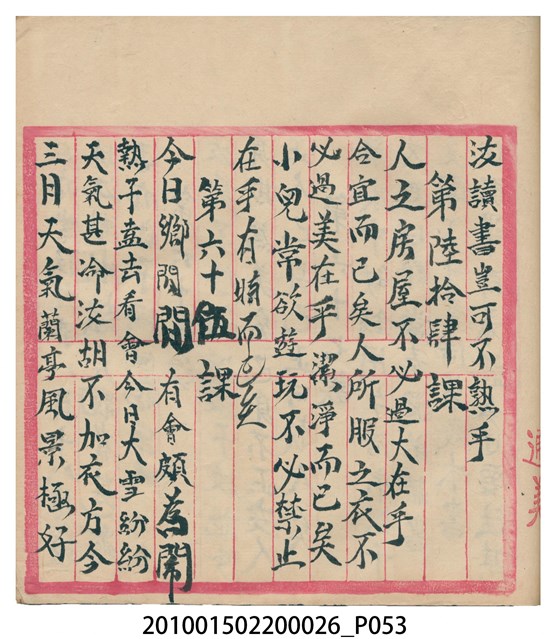 汝讀書豈可不熟乎
第陸拾肆課
人之房屋不必過大在乎
合宜而已矣人所服之衣不
必過美在乎潔淨而已矣
小兒常欲遊玩不必禁止
在乎有時而已矣
第六十伍課
今日鄉間間有會頗為鬧
熱子盍去看會今日大雪紛紛
天氣甚冷汝胡不加衣方今
三月天氣蘭亭風景極好
201001502200026_P053